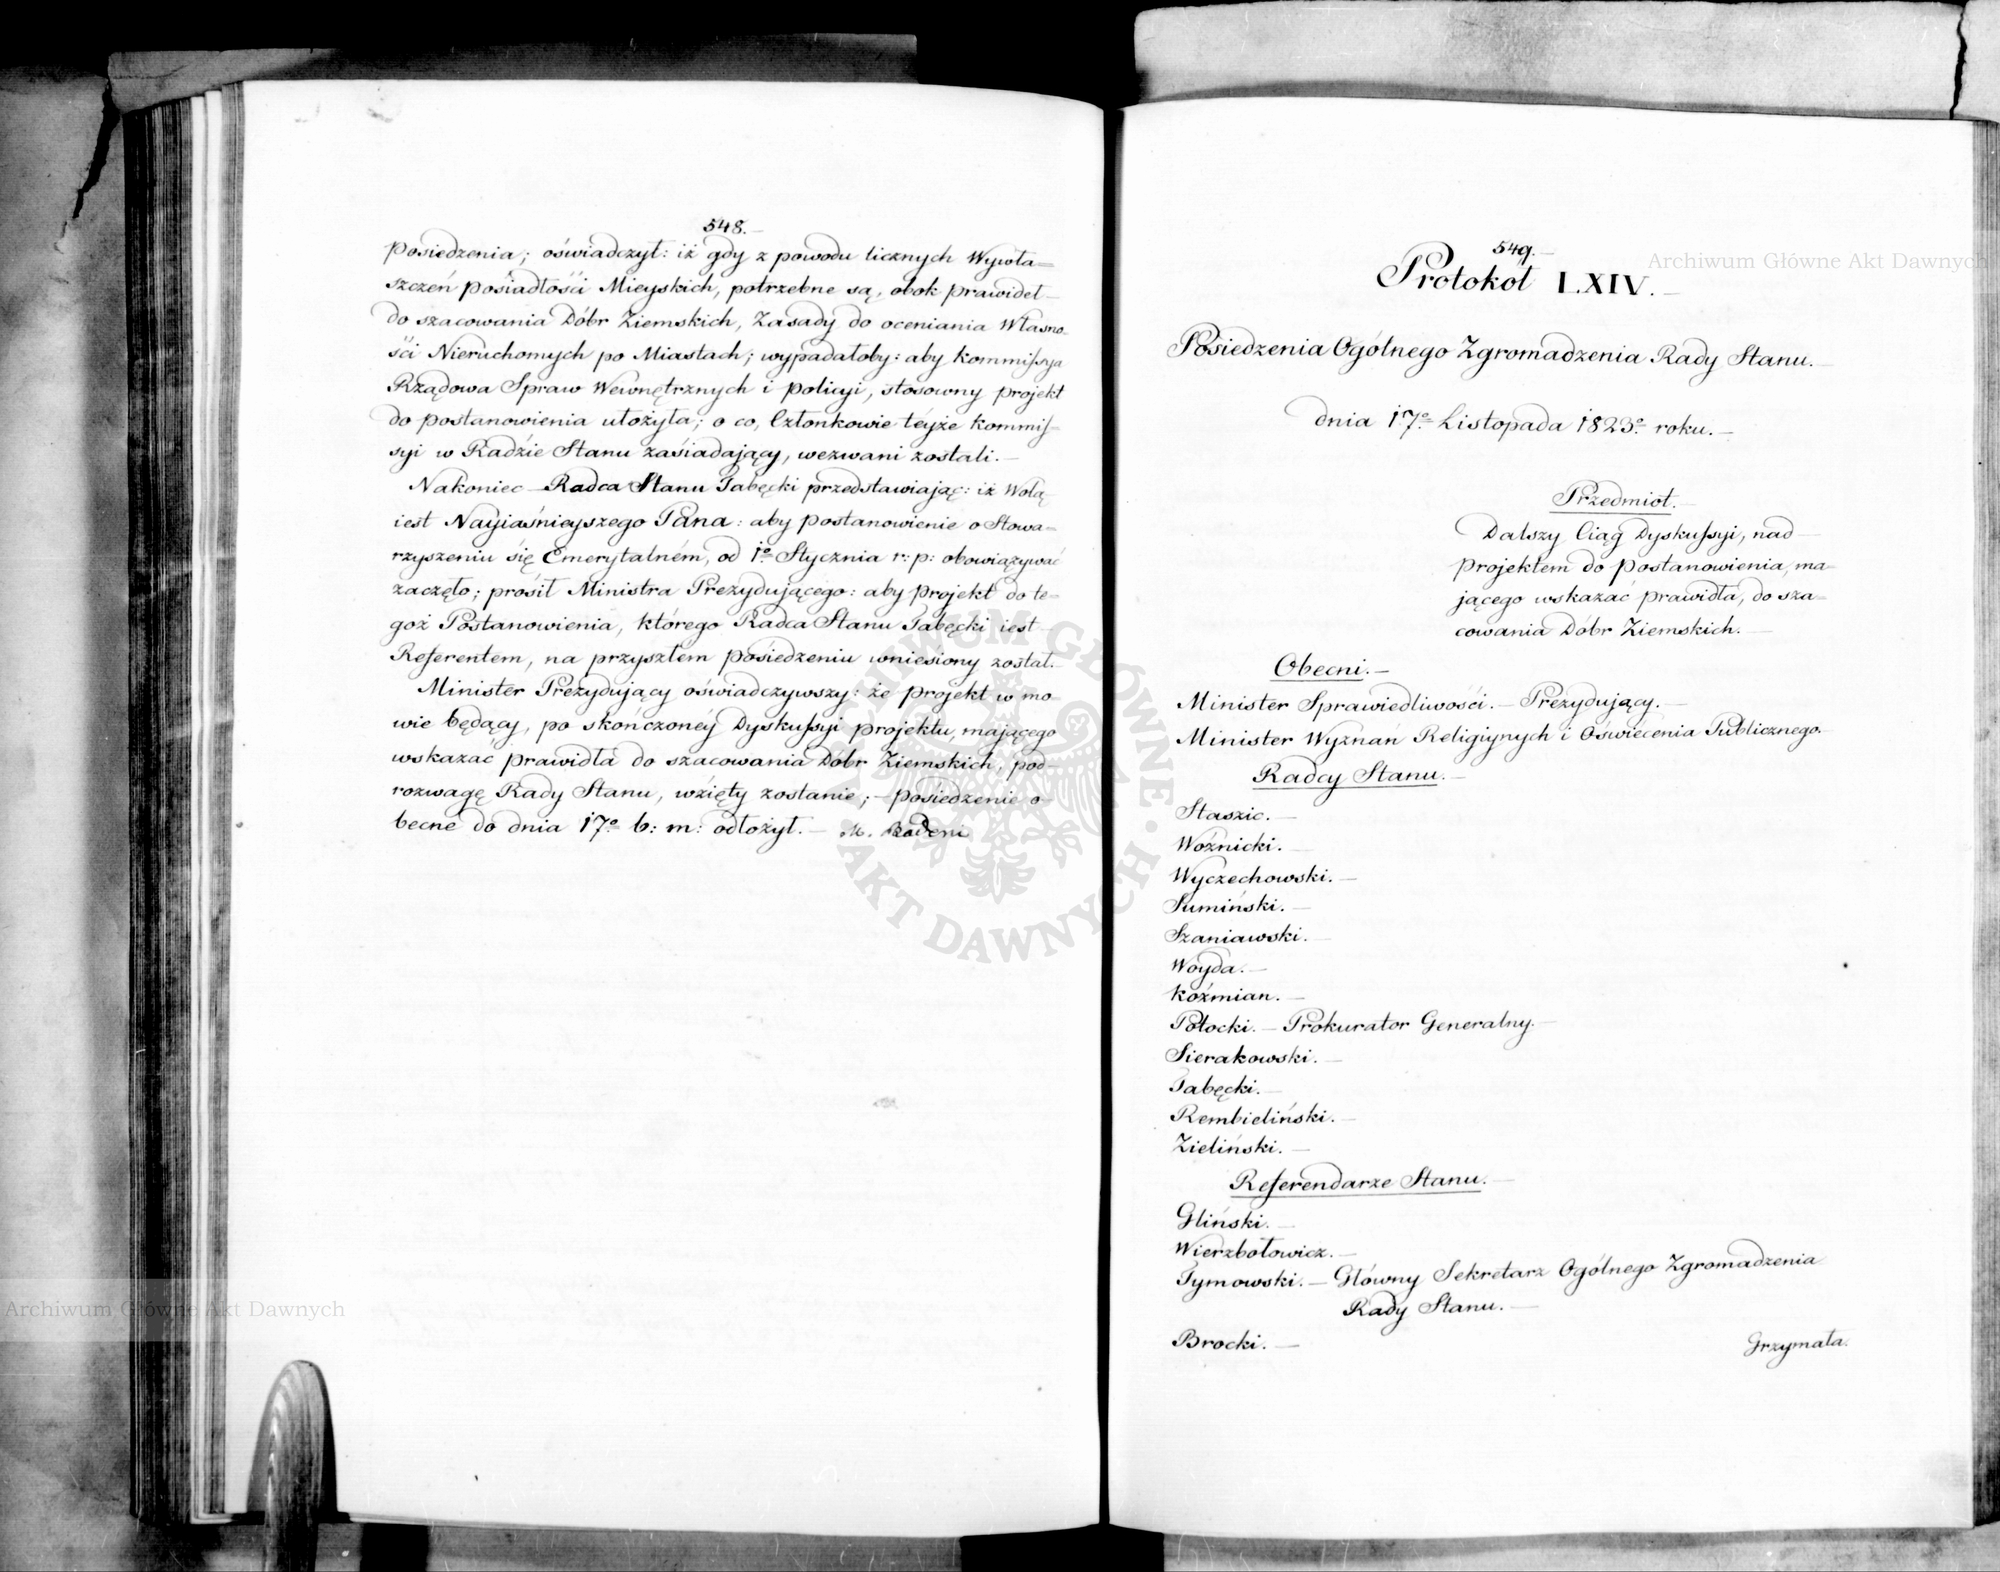 548.
posiedzenia; oświadczył: iż gdy z powodu licznych Wywła=
szczeń posiadłości Mieyskich, potrzebne są, obok prawideł
do szacowania Dóbr Ziemskich, Zasady do oceniania Własno=
ści Nieruchomych po Miastach; wypadałoby: aby Kommissya
Rządowa Spraw Wewnętrznych i Policyi, stosowny projekt
do postanowienia ułożyła; o co, Członkowie téyże Kommis=
syi w Radzie Stanu zasiadający, wezwani zostali.—
Nakoniec Radca Stanu Tabęcki przedstawiając: iż Wolą
iest Nayiaśnieyszego Pana: aby postanowienie o Stowa=
rzyszeniu się Emerytalném, od 1º Stycznia r: p: obowiązywać
zaczęło; prosił Ministra Prezydującego: aby projekt do te=
goż Postanowienia, którego Radca Stanu Tabęcki iest
Referentem, na przyszłem posiedzeniu wniesiony został.—
Minister Prezydujący oświadczywszy: że projekt w mo=
wie będący, po skończonéy Dyskussyi projektu, mającego
wskazać prawidła do szacowania Dóbr Ziemskich, pod
rozwagę Rady Stanu, wzięty zostanie;— posiedzenie o=
becne do dnia 17º b: m: odłożył.— M. Badeni
549.—
Protokół LXIV.—
Posiedzenia Ogólnego Zgromadzenia Rady Stanu.—
dnia 17º Listopada 1823º roku.—
Przedmiot.—
Dalszy Ciąg Dyskussyi, nad
projektem do postanowienia, ma=
jącego wskazać prawidła, do sza=
cowania Dóbr Ziemskich.—
Obecni.—
Minister Sprawiedliwości.— Prezydujący.—
Minister Wyznań Religiynych i Oświecenia Publicznego.—
Radcy Stanu.—
Staszic.—
Woźnicki.—
Wyczechowski.—
Sumiński.—
Szaniawski.—
Woyda.—
Koźmian.—
Potocki.— Prokurator Generalny.—
Sierakowski.—
Tabęcki.—
Rembieliński.—
Zieliński.—
Referendarze Stanu.—
Gliński.—
Wierzbołowicz.—
Tymowski.— Główny Sekretarz Ogólnego Zgromadzenia
Rady Stanu.—
Brocki.—
Grzymała.
Archiwum Główne Akt Dawnych
Archiwum Główne Akt Dawnych
ARCHIWUM GŁÓWNE · AKT DAWNYCH ·